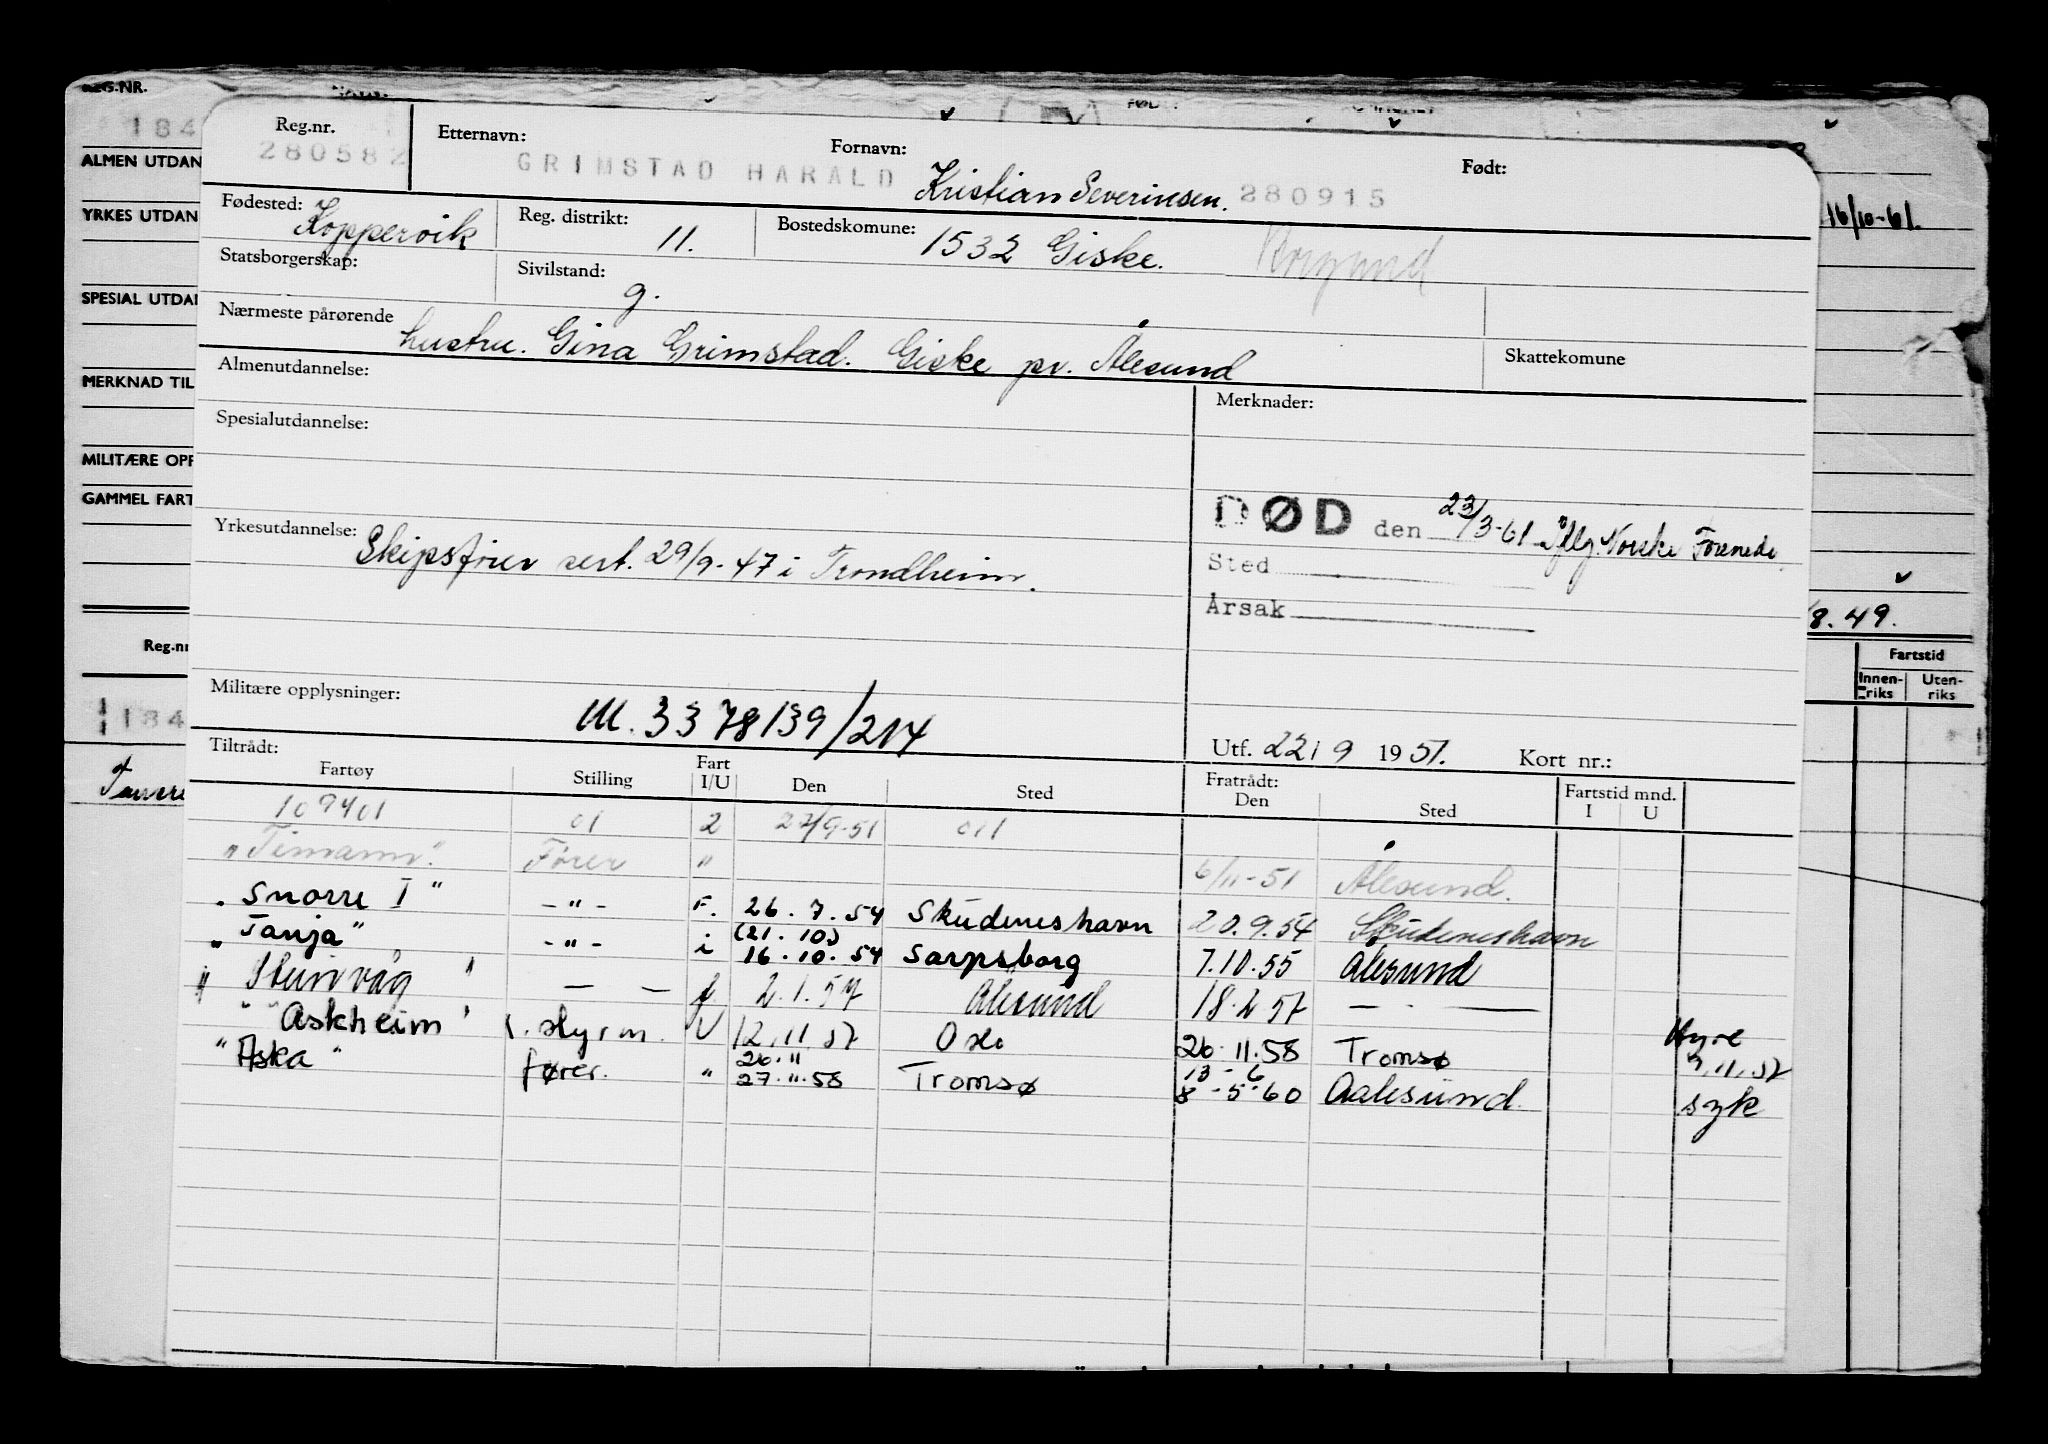 REG.NR.
184
ALMEN UTDAN
YRKES UTDAN
SPESIAL UTDAN
MERKNAD TIL
MILITÆRE OPP
GAMMEL FART
Reg.nr
184
16/10-61.
8.49.
Fartstid
Innenriks Utenriks
Reg.nr. Etternavn: Fornavn: Født:
280582 GRIMSTAD HARALD Kristian Severinsen. 280915
Fødested: Koppervik Reg. distrikt: 11. Bostedskomune: 1532 Giske. Borgund
Statsborgerskap: Sivilstand: g.
Nærmeste pårørende hustru. Gina Grimstad. Giske pr. Ålesund Skattekomune
Almenutdannelse: Merknader:
Spesialutdannelse:
DØD den 23/3-61 Iflg. Norske Forenede.
Sted
Årsak
Yrkesutdannelse: Skipsfører sert. 29/9-47 i Trondheim.
Militære opplysninger: M. 3378139/214
Utf. 22/9 1951. Kort nr.:
Tiltrådt: Fratrådt:
Fartøy Stilling Fart I/U Den Sted Den Sted Fartstid mnd. I U
109401 01 2 22/9-51 011
"Timann". Fører " 6/11-51 Ålesund.
"Snorre I" -"- F. 26.7.54 Skudeneshavn 20.9.54 Skudeneshavn
"Tanja" -"- i (21.10.) 16.10.54 Sarpsborg 7.10.55 Ålesund
"Steinvåg" — — f 2.1.57 Ålesund 18.2.57 — —
"Askheim" 1. styrm. U 12.11.57 Oslo 26.11.58 Tromsø Hyre 9.11.57
"Aska" fører. " 26.11 27.11.58 Tromsø 13-6 8-5-60 Aalesund. syk